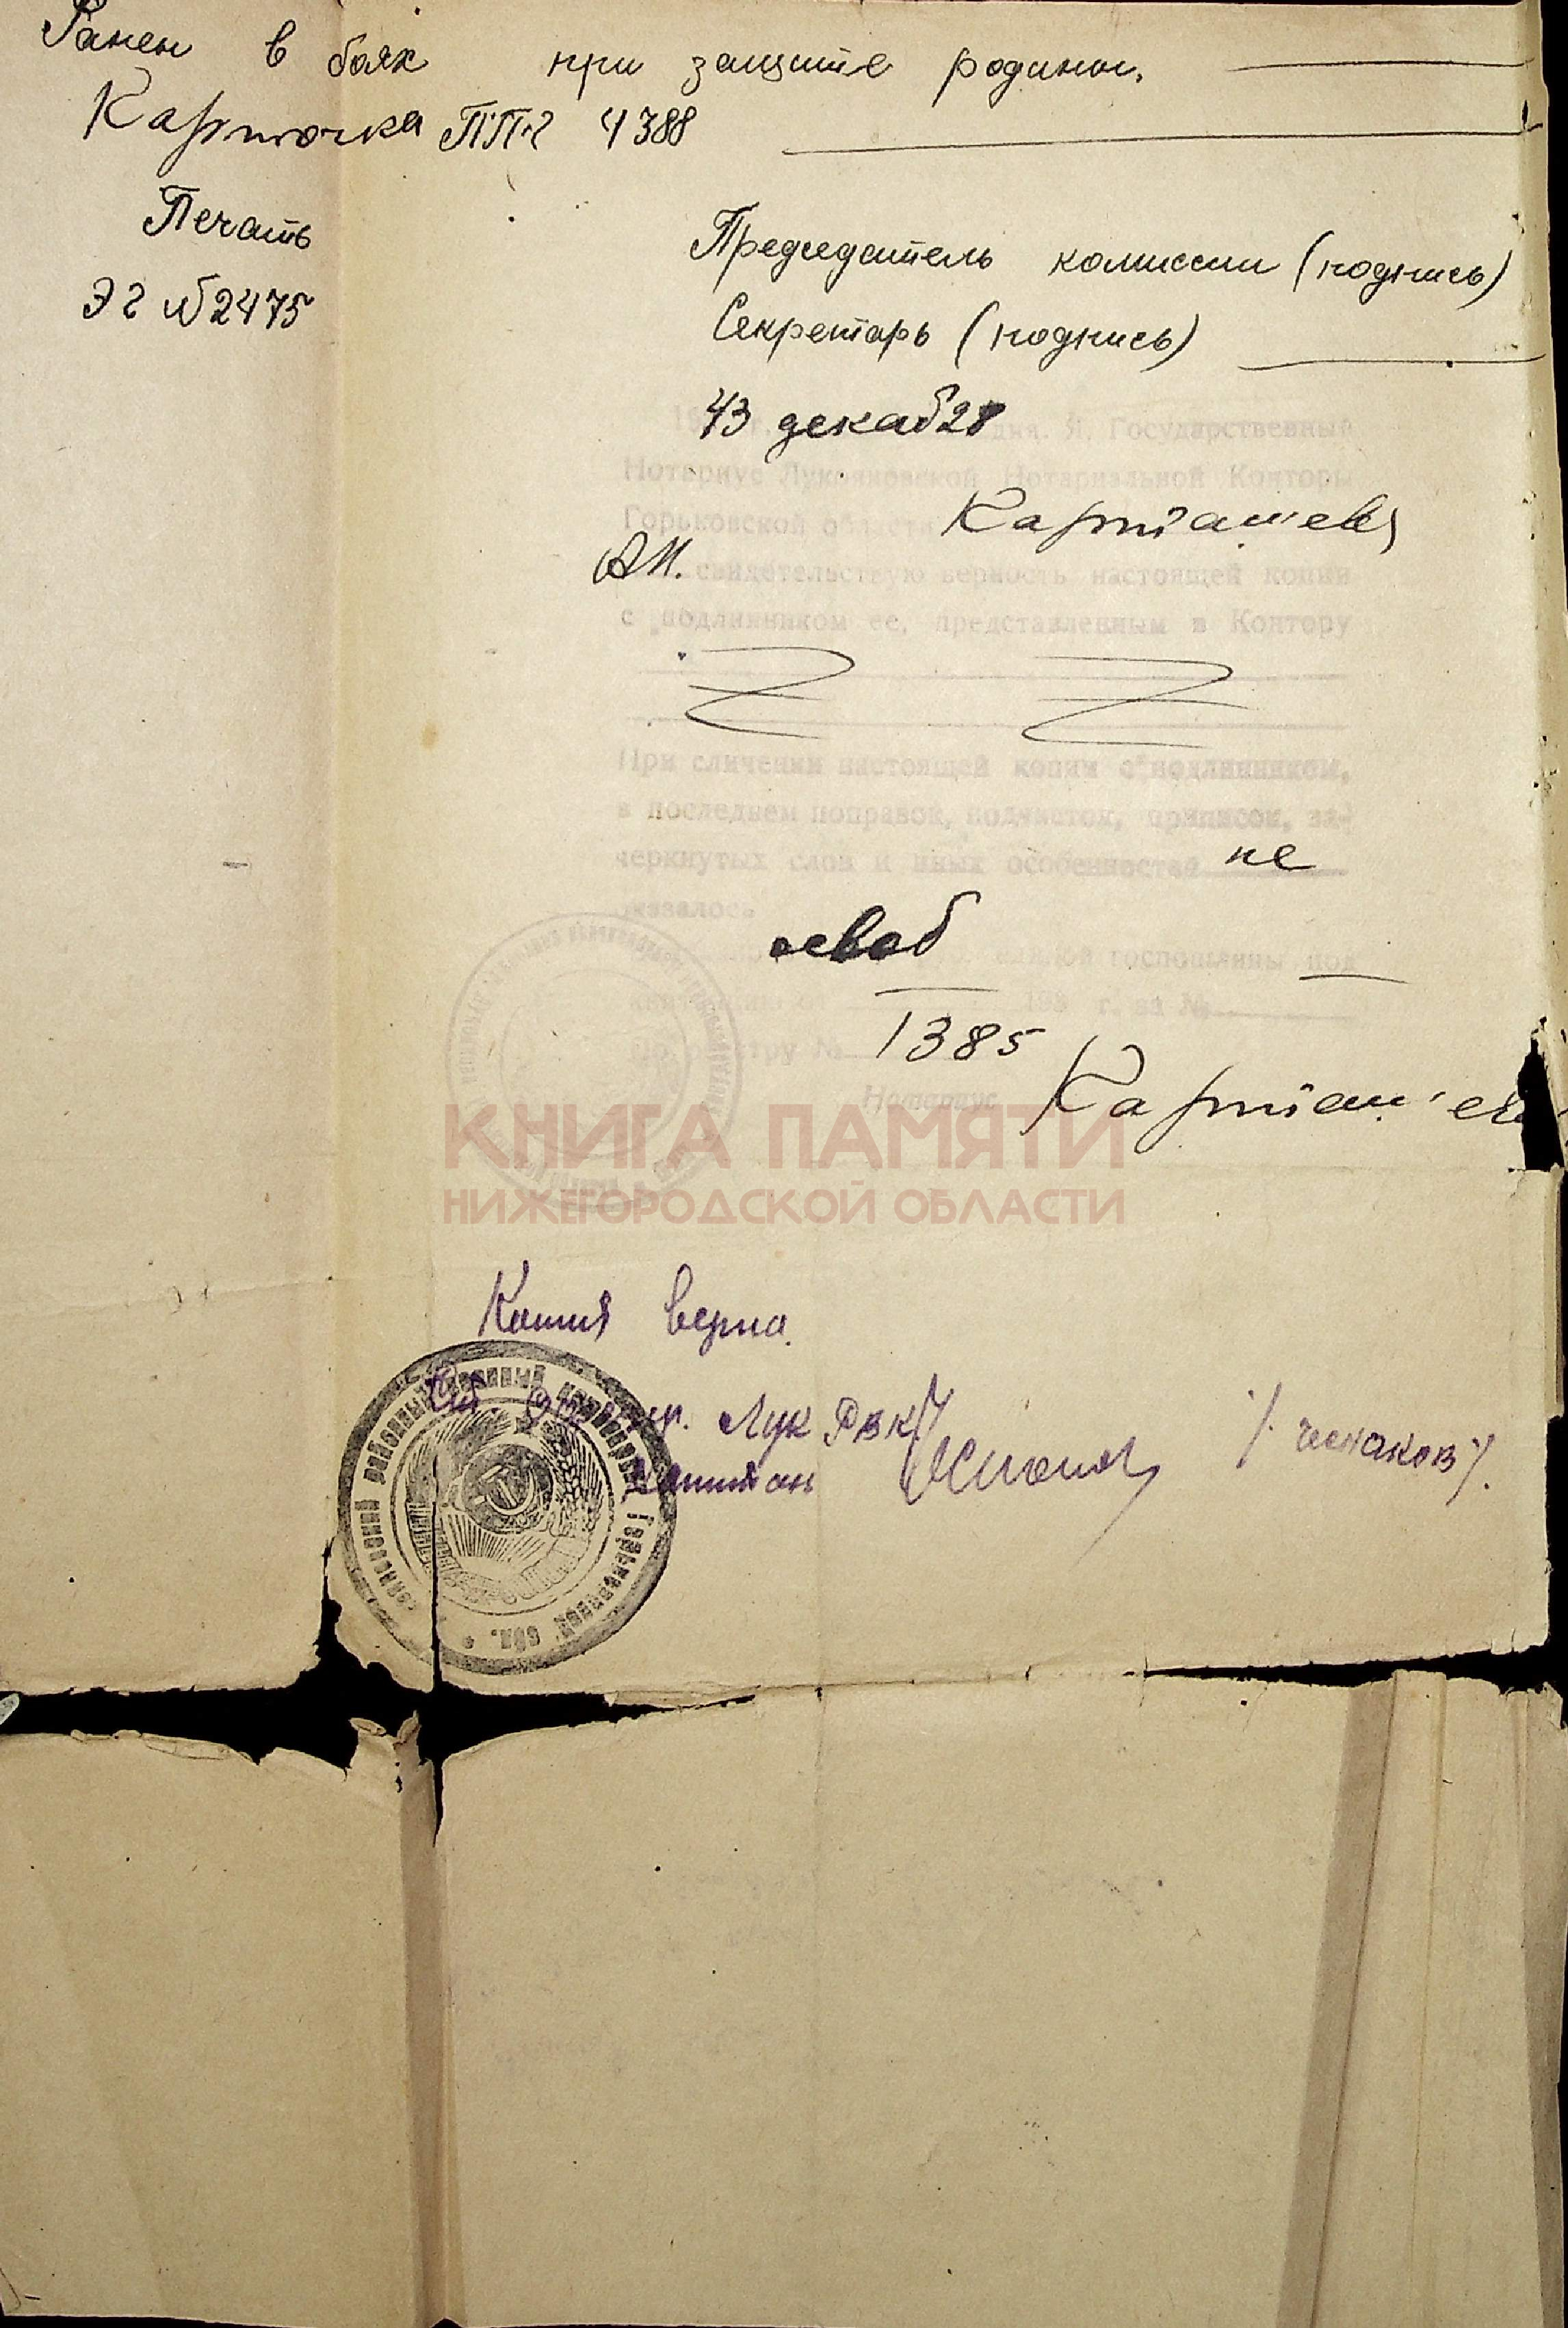 Ранен в боях при защите родины.
Карточка ППГ 4388
Печать
ЭГ №2475
Председатель комиссии (подпись)
Секретарь (подпись)
43 декаб 28
дня. Я, Государственный
Нотариус Лукояновской Нотариальной Конторы
Горьковской области Карташева
А.И. свидетельствую верность настоящей копии
с подлинником ее, представленным в Контору
При сличении настоящей копии с подлинником,
в последнем поправок, подчисток, приписок, за-
черкнутых слов и иных особенностей не
оказалось
освоб
госпошлины по
193 г. за №
По реестру № 1385
Нотариус Карташева
КНИГА ПАМЯТИ
НИЖЕГОРОДСКОЙ ОБЛАСТИ
Копия верна.
Лук РВК
Капитан /Чепаков/.
районный военный Горьковской обл.